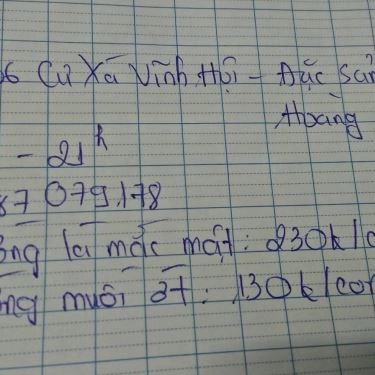 6 Cư Xá Vĩnh Hội - Đặc sản
Hoàng
- 21h
87 079.178
lá mắc mật: 230k/c
muối ớt: 130k/con